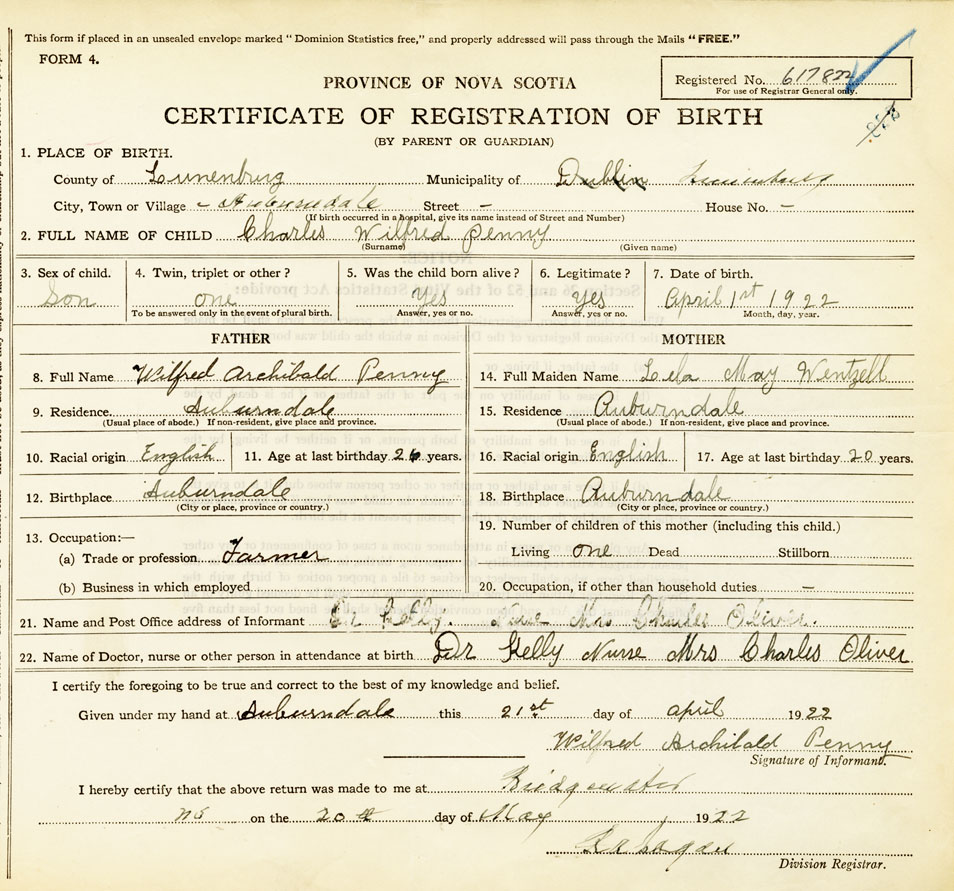 This form if placed in an unsealed envelope marked "Dominion Statistics free," and properly addressed will pass through the Mails "FREE."
FORM 4.
PROVINCE OF NOVA SCOTIA
Registered No. 617822
For use of Registrar General only.
CERTIFICATE OF REGISTRATION OF BIRTH
(BY PARENT OR GUARDIAN)
1. PLACE OF BIRTH.
County of Lunenburg Municipality of Dublin Lunenburg
City, Town or Village - Auburndale Street - House No. -
(If birth occurred in a hospital, give its name instead of Street and Number)
2. FULL NAME OF CHILD Charles Wilfred Penny
(Surname) (Given name)
3. Sex of child. 4. Twin, triplet or other? 5. Was the child born alive? 6. Legitimate? 7. Date of birth.
Son one Yes Yes April 1st 1922
To be answered only in the event of plural birth. Answer, yes or no. Answer, yes or no. Month, day, year.
FATHER MOTHER
8. Full Name Wilfred Archibald Penny 14. Full Maiden Name Lela May Wentzell
9. Residence. Auburndale 15. Residence Auburndale
(Usual place of abode.) If non-resident, give place and province. (Usual place of abode.) If non-resident, give place and province.
10. Racial origin English 11. Age at last birthday 26 years. 16. Racial origin English 17. Age at last birthday 20 years.
12. Birthplace Auburndale 18. Birthplace Auburndale
(City or place, province or country.) (City or place, province or country.)
13. Occupation:— 19. Number of children of this mother (including this child.)
(a) Trade or profession Farmer Living one Dead Stillborn
(b) Business in which employed 20. Occupation, if other than household duties —
21. Name and Post Office address of Informant Dr Kelly. Nurse Mrs Charles Oliver.
22. Name of Doctor, nurse or other person in attendance at birth Dr Kelly Nurse Mrs Charles Oliver
I certify the foregoing to be true and correct to the best of my knowledge and belief.
Given under my hand at Auburndale this 21st day of april 1922
Wilfred Archibald Penny
Signature of Informant.
I hereby certify that the above return was made to me at Bridgewater
NS on the 20 day of May 1922
Division Registrar.